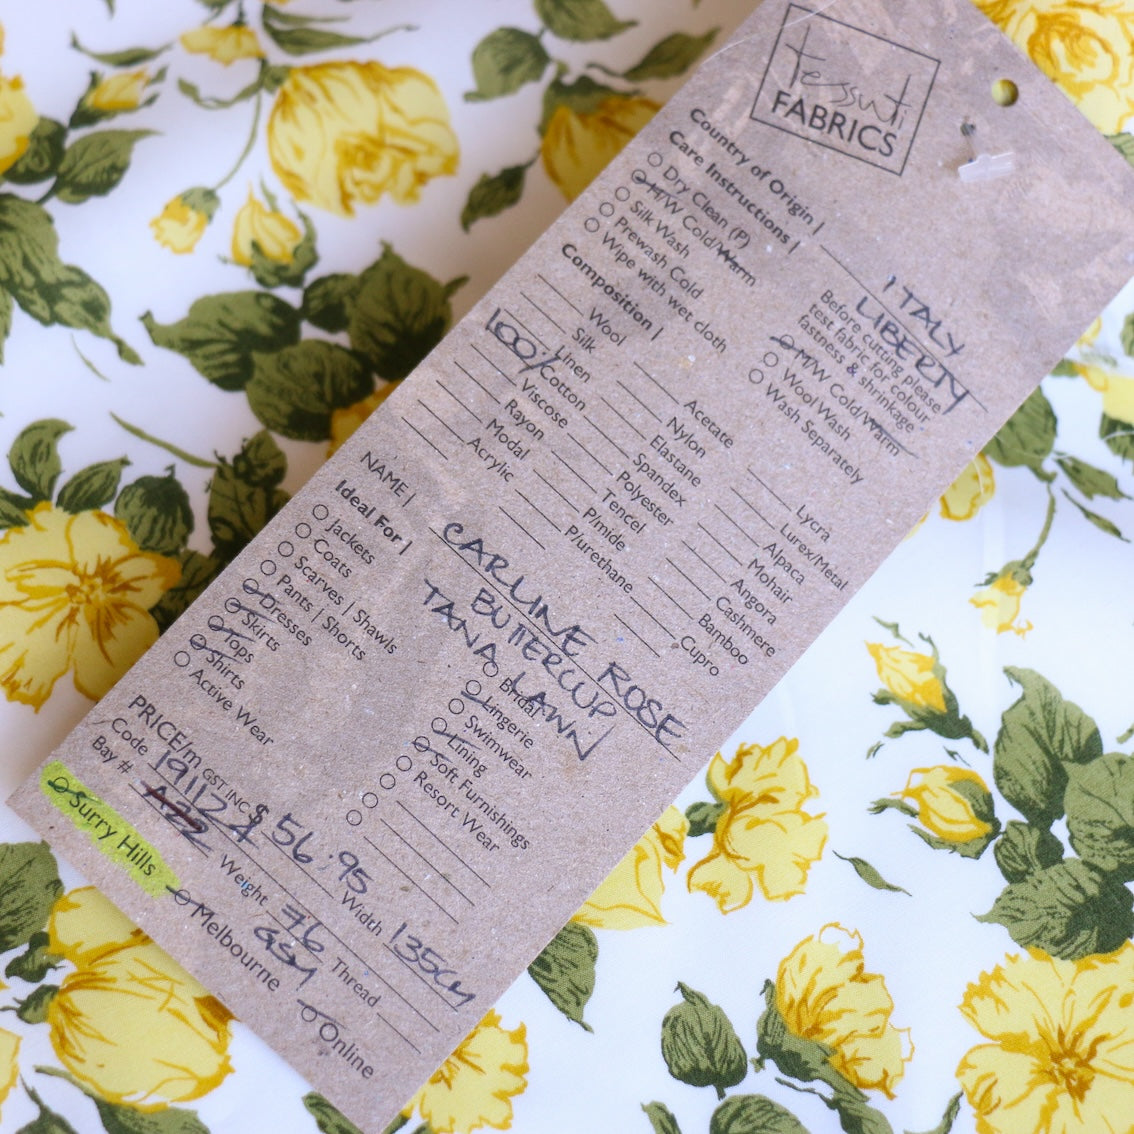 tessuti
FABRICS
Country of Origin | ITALY
LIBERTY
Care Instructions |
Dry Clean (P)
H/W Cold/Warm
Silk Wash
Prewash Cold
Wipe with wet cloth
Before cutting please
test fabric for colour
fastness & shrinkage
M/W Cold/Warm
Wool Wash
Wash Separately
Composition |
Wool
Silk
Linen
100% Cotton
Viscose
Rayon
Modal
Acrylic
Acetate
Nylon
Elastane
Spandex
Polyester
Tencel
P/mide
P/urethane
Lycra
Lurex/Metal
Alpaca
Mohair
Angora
Cashmere
Bamboo
Cupro
NAME | CARLINE ROSE
BUTTERCUP
TANA LAWN
Ideal For |
Jackets
Coats
Scarves | Shawls
Pants | Shorts
Dresses
Skirts
Tops
Shirts
Active Wear
Bridal
Lingerie
Swimwear
Lining
Soft Furnishings
Resort Wear
PRICE/m GST INC. $56.95
Code 191127 Width 135cm
Bay # A22 Weight 76 GSM Thread
Surry Hills
Melbourne
Online